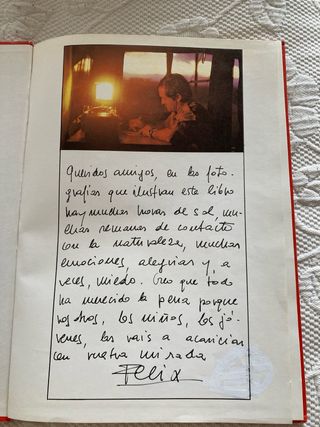 Queridos amigos, en las foto-
grafías que ilustran este libro
hay muchas horas de sol, mu-
chas semanas de contacto
con la naturaleza, muchas
emociones, alegrías y, a
veces, miedo. Creo que todo
ha merecido la pena porque
vosotros, los niños, los jó-
venes, las vais a acariciar
con vuestra mirada
Felix